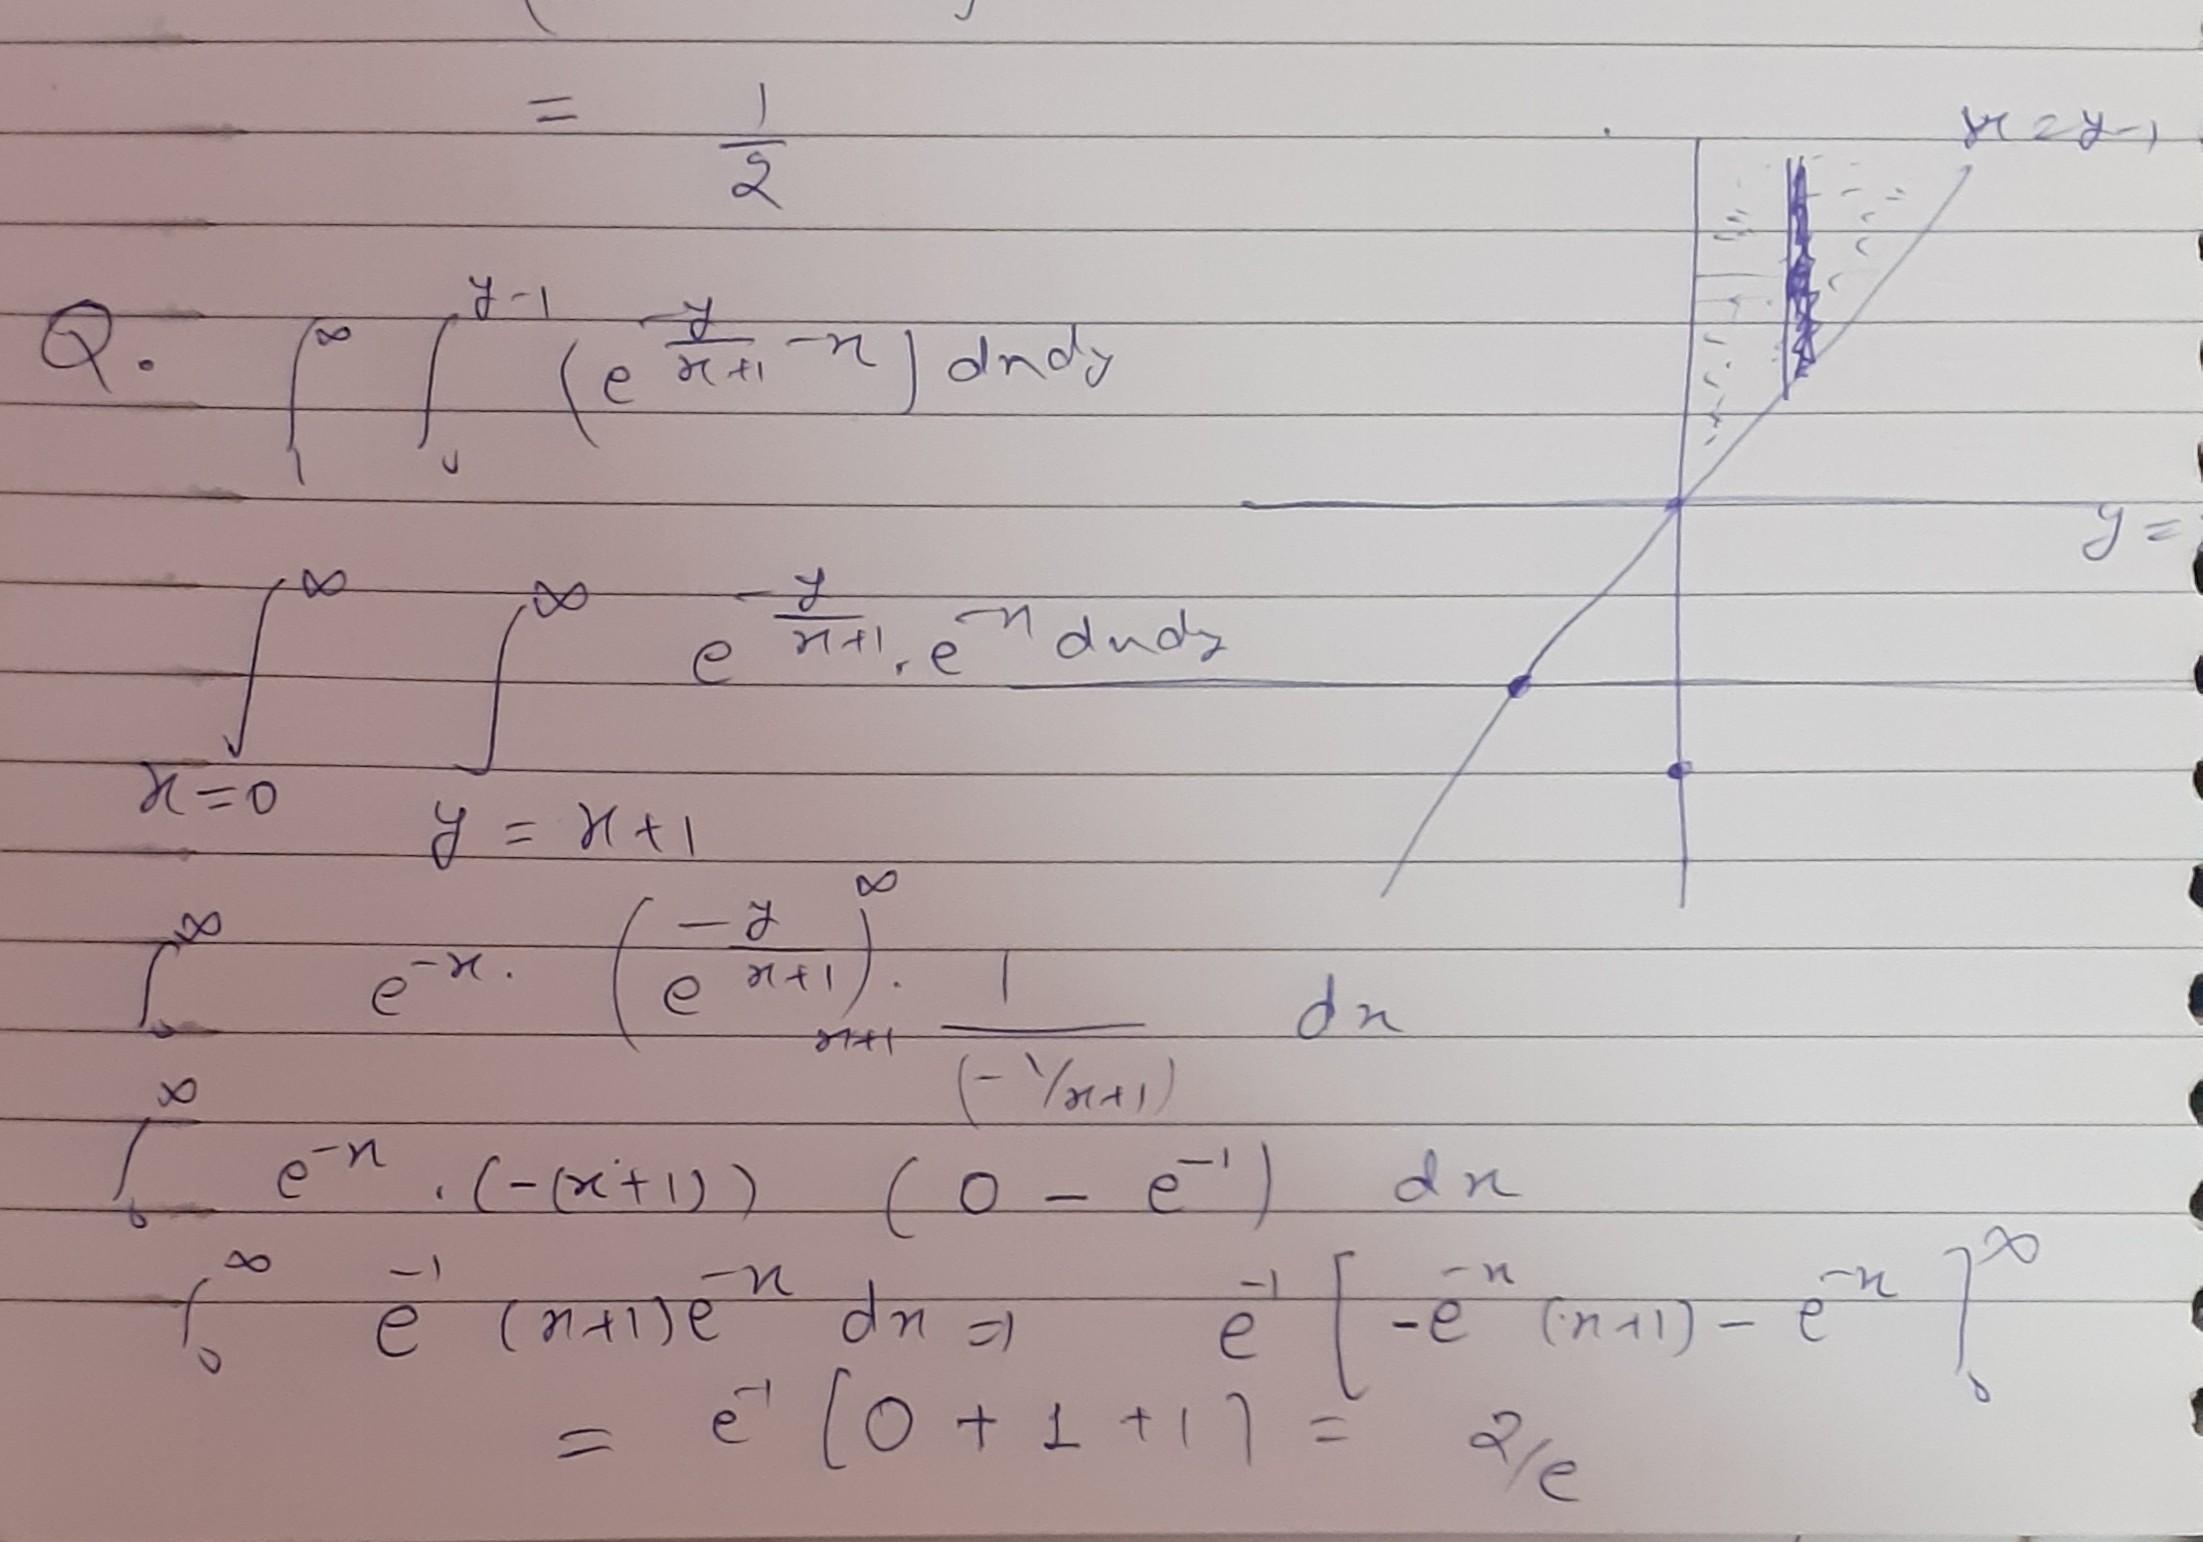 = 1/2
x = y-1
Q. ∫₁^∞ ∫₀^{y-1} (e^{-y/(x+1) - x}) dxdy
y =
∫_{x=0}^∞ ∫_{y=x+1}^∞ e^{-y/(x+1)} . e^{-x} dxdy
∫₀^∞ e^{-x} . (e^{-y/(x+1)})_{x+1}^∞ . 1/(-1/x+1) dx
∫₀^∞ e^{-x} . (-(x+1)) (0 - e^{-1}) dx
∫₀^∞ e^{-1} (x+1)e^{-x} dx ⇒ e^{-1} [-e^{-x} (x+1) - e^{-x}]₀^∞
= e^{-1} [0 + 1 + 1] = 2/e